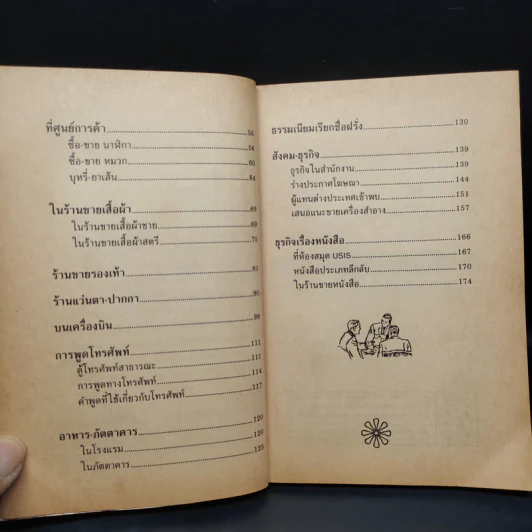 ที่ศูนย์การค้า 56
ซื้อ-ขาย นาฬิกา 56
ซื้อ-ขาย หมวก 60
บุหรี่-ยาเส้น 64
ในร้านขายเสื้อผ้า 68
ในร้านขายเสื้อผ้าชาย 69
ในร้านขายเสื้อผ้าสตรี 75
ร้านขายรองเท้า 81
ร้านแว่นตา-ปากกา 90
บนเครื่องบิน 98
การพูดโทรศัพท์ 111
ตู้โทรศัพท์สาธารณะ 111
การพูดทางโทรศัพท์ 114
คำพูดที่ใช้เกี่ยวกับโทรศัพท์ 117
อาหาร-ภัตตาคาร 120
ในโรงแรม 120
ในภัตตาคาร 125
ธรรมเนียมเรียกชื่อฝรั่ง 130
สังคม-ธุรกิจ 139
ธุรกิจในสำนักงาน 139
ร่างประกาศโฆษณา 144
ผู้แทนต่างประเทศเข้าพบ 151
เสนอแนะขายเครื่องสำอาง 157
ธุรกิจเรื่องหนังสือ 166
ที่ห้องสมุด USIS 167
หนังสือประเภทลึกลับ 170
ในร้านขายหนังสือ 174